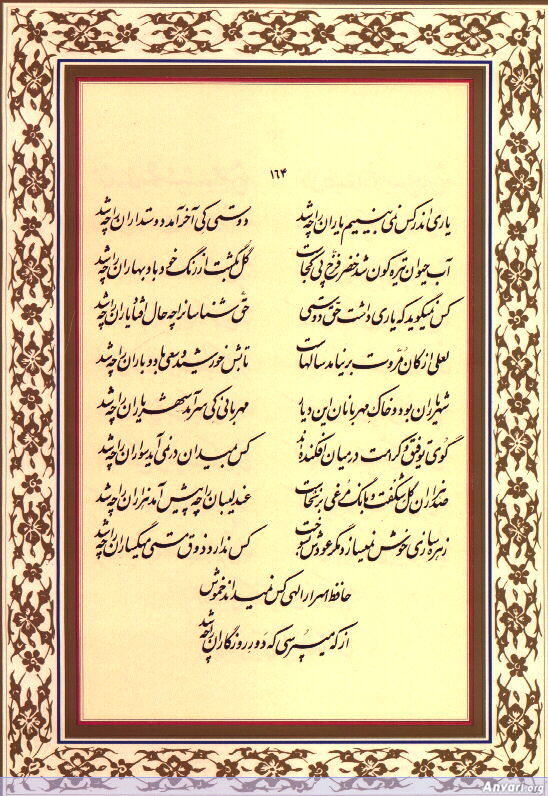 ۱۶۴
یاری اندر کس نمی بینیم یاران را چه شد دوستی کی آخر آمد دوستداران را چه شد
آب حیوان تیره گون شد خضر فرخ پی کجاست گل بگشت از رنگ خود باد بهاران را چه شد
کس نمیگوید که یاری داشت حق دوستی حق شناسان را چه حال افتاد یاران را چه شد
لعلی از کان مروت برنیامد سالهاست تابش خورشید و سعی باد و باران را چه شد
شهر یاران بود و خاک مهربانان این دیار مهربانی کی سر آمد شهریاران را چه شد
گوی توفیق و کرامت در میان افکنده اند کس بمیدان در نمی آید سواران را چه شد
صد هزاران گل شکفت و بانگ مرغی برنخاست عندلیبان را چه پیش آمد هزاران را چه شد
زهره سازی خوش نمیسازد مگر عودش بسوخت کس ندارد ذوق مستی میگساران را چه شد
حافظ اسرار الهی کس نمیداند خموش
از که میپرسی که دور روزگاران را چه شد
Anvari.org